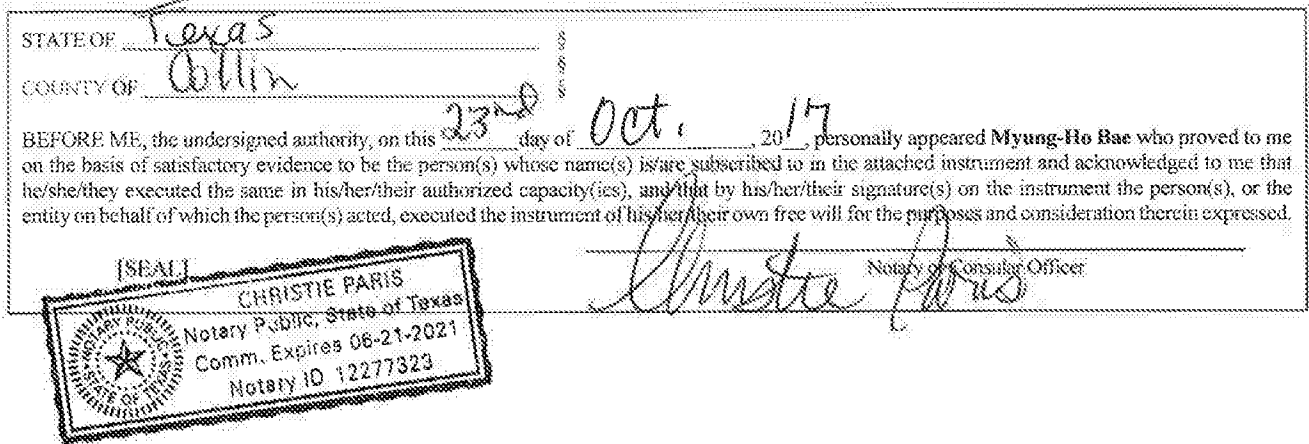 STATE OF Texas §
§
COUNTY OF Collin §
BEFORE ME, the undersigned authority, on this 23rd day of Oct. , 2017, personally appeared Myung-Ho Bae who proved to me
on the basis of satisfactory evidence to be the person(s) whose name(s) is/are subscribed to in the attached instrument and acknowledged to me that
he/she/they executed the same in his/her/their authorized capacity(ies), and that by his/her/their signature(s) on the instrument the person(s), or the
entity on behalf of which the person(s) acted, executed the instrument of his/her/their own free will for the purposes and consideration therein expressed.
Christie Paris
Notary or Consular Officer
[SEAL]
CHRISTIE PARIS
Notary Public, State of Texas
Comm. Expires 06-21-2021
Notary ID 12277323
NOTARY PUBLIC
STATE OF TEXAS